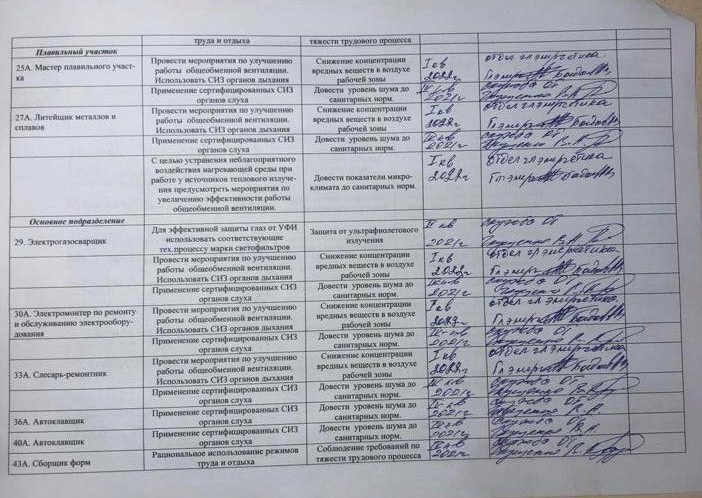 труда и отдыха
тяжести трудового процесса
Плавильный участок
25А. Мастер плавильного участ-
ка
Провести мероприятия по улучшению
работы общеобменной вентиляции.
Использовать СИЗ органов дыхания
Снижение концентрации
вредных веществ в воздухе
рабочей зоны
I кв
2022г
отдел гл энергетика
Гл энерг
Применение сертифицированных СИЗ
органов слуха
Довести уровень шума до
санитарных норм.
2021г
служба ОТ
27А. Литейщик металлов и
сплавов
Провести мероприятия по улучшению
работы общеобменной вентиляции.
Использовать СИЗ органов дыхания
Снижение концентрации
вредных веществ в воздухе
рабочей зоны
I кв
2022г
отдел гл энергетика
Гл энерг
Применение сертифицированных СИЗ
органов слуха
Довести уровень шума до
санитарных норм.
2021г
служба ОТ
С целью устранения неблагоприятного
воздействия нагревающей среды при
работе у источников теплового излуче-
ния предусмотреть мероприятия по
увеличению эффективности работы
общеобменной вентиляции.
Довести показатели микро-
климата до санитарных норм.
I кв
2022г
отдел гл энергетика
Гл энерг
Основное подразделение
29. Электрогазосварщик
Для эффективной защиты глаз от УФИ
использовать соответствующие
тех.процессу марки светофильтров
Защита от ультрафиолетового
излучения
кв
2021г
служба ОТ
Провести мероприятия по улучшению
работы общеобменной вентиляции.
Использовать СИЗ органов дыхания
Снижение концентрации
вредных веществ в воздухе
рабочей зоны
I кв
2022г
отдел гл энергетика
Гл энерг
Применение сертифицированных СИЗ
органов слуха
Довести уровень шума до
санитарных норм.
2021г
служба ОТ
30А. Электромонтер по ремонту
и обслуживанию электрообору-
дования
Провести мероприятия по улучшению
работы общеобменной вентиляции.
Использовать СИЗ органов дыхания
Снижение концентрации
вредных веществ в воздухе
рабочей зоны
I кв
отдел гл энергетика
Гл энерг
Применение сертифицированных СИЗ
органов слуха
Довести уровень шума до
санитарных норм.
2021г
служба ОТ
33А. Слесарь-ремонтник
Провести мероприятия по улучшению
работы общеобменной вентиляции.
Использовать СИЗ органов дыхания
Снижение концентрации
вредных веществ в воздухе
рабочей зоны
I кв
2022г
отдел гл энергетика
Гл энерг
Применение сертифицированных СИЗ
органов слуха
Довести уровень шума до
санитарных норм.
2021г
служба ОТ
36А. Автоклавщик
Применение сертифицированных СИЗ
органов слуха
Довести уровень шума до
санитарных норм.
2021г
служба ОТ
40А. Автоклавщик
Применение сертифицированных СИЗ
органов слуха
Довести уровень шума до
санитарных норм.
2021г
служба ОТ
43А. Сборщик форм
Рациональное использование режимов
труда и отдыха
Соблюдение требований по
тяжести трудового процесса
2021г
служба ОТ